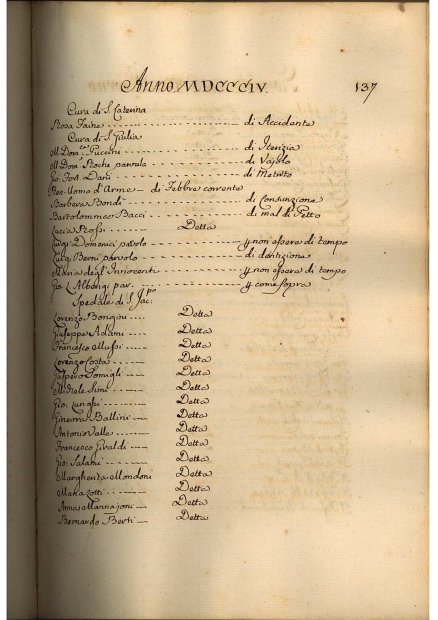 Anno MDCCCIV. 137
Cura di S. Caterina
Rosa Faine di Accidente
Cura di S. Giulia
M. Dom.ca Puccini di Itterizia
M. Dom.ca Roche parvula di Vajolo
Gio: Fort. Dani di
Ben. Uomo d'Arme di Febbre corrente
Barbera Bondi di Consunzione
Bartolommeo Bacci di mal di Petto
Lucia Rossi Detta
Luigi Domenici parvolo p non essere di tempo
Luigi Berni parvolo di dentizione
Maria degl'Innocenti p non essere di tempo
Gio: Albergi par. p come sopra
Spedale di S. Jac.po
Lorenzo Bongini Detta
Giuseppe Adami Detta
Francesco Mussi Detta
Lorenzo Costa Detta
Gaspero Somigli Detta
Michele Simi Detta
Gio: Lunghi Detta
Ginevra Ballini Detta
Antonio Valle Detta
Francesco Givaldi Detta
Gio: Salami Detta
Margherita Mondoni Detta
Maria Zotti Detta
Anna Mannajoni Detta
Bernardo Berti Detta